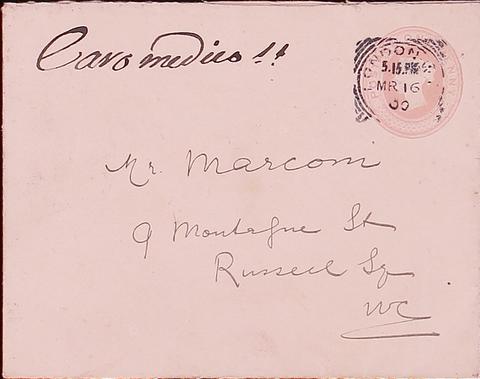 Caro medico !!
LONDON
5.15 PM
MR 16
00
PENNY
Mr. Marconi
9 Montague St
Russell Sq
WC